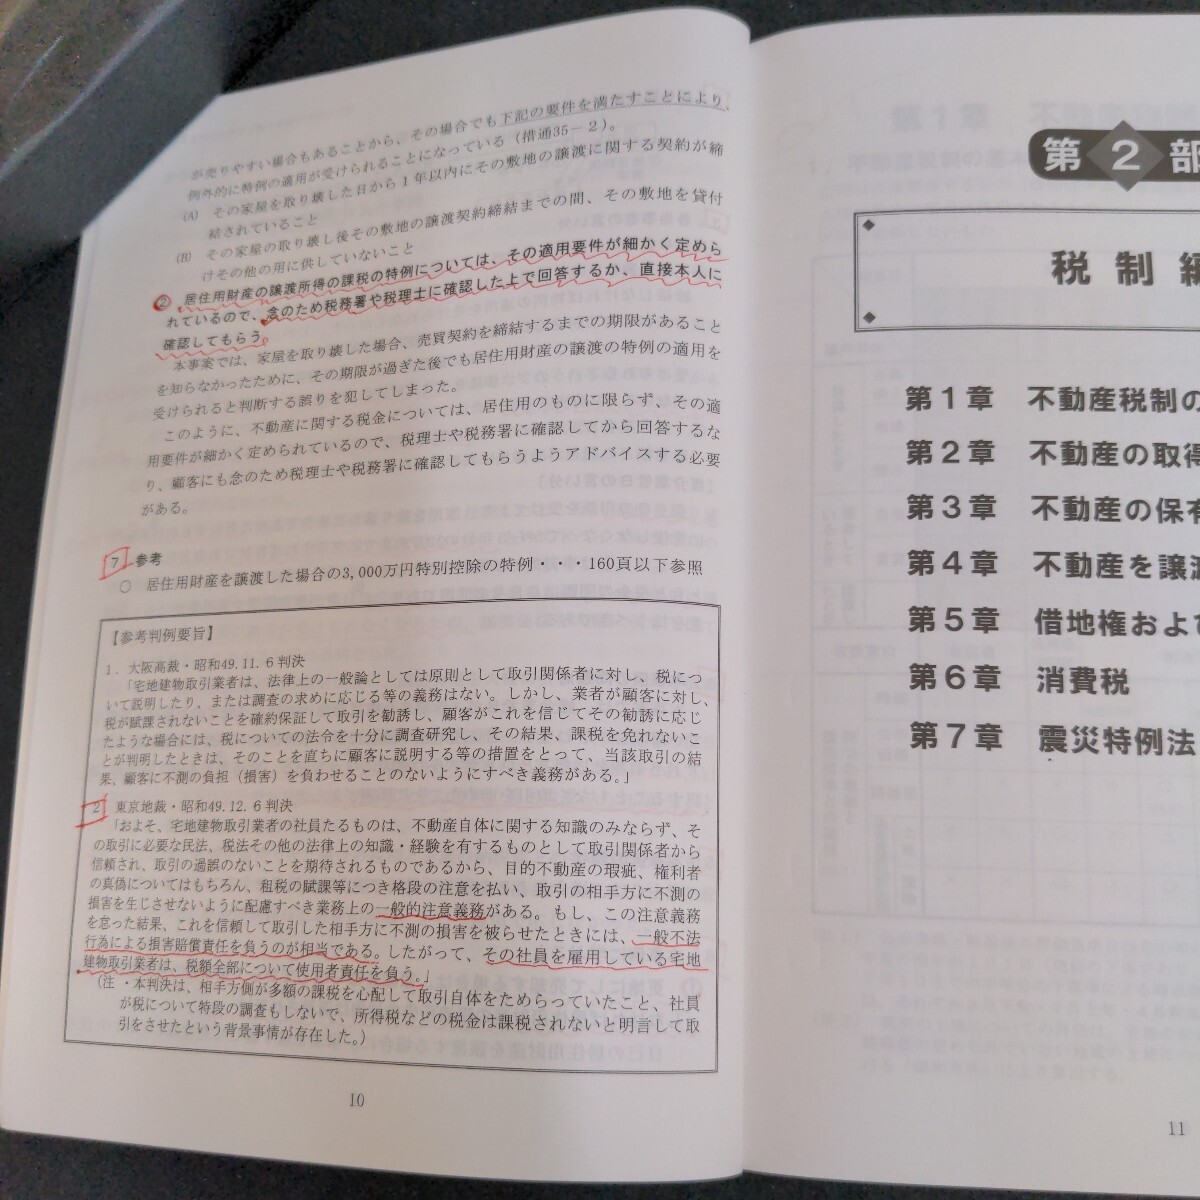 が売りやすい場合もあることから、その場合でも下記の要件を満たすことにより、
例外的に特例の適用が受けられることになっている（措通35－2）。
(A) その家屋を取り壊した日から1年以内にその敷地の譲渡に関する契約が締
結されていること
(B) その家屋の取り壊し後その敷地の譲渡契約締結までの間、その敷地を貸付
けその他の用に供していないこと
② 居住用財産の譲渡所得の課税の特例については、その適用要件が細かく定めら
れているので、念のため税務署や税理士に確認した上で回答するか、直接本人に
確認してもらう。
本事案では、家屋を取り壊した場合、売買契約を締結するまでの期限があること
を知らなかったために、その期限が過ぎた後でも居住用財産の譲渡の特例の適用を
受けられると判断する誤りを犯してしまった。
このように、不動産に関する税金については、居住用のものに限らず、その適
用要件が細かく定められているので、税理士や税務署に確認してから回答するな
り、顧客にも念のため税理士や税務署に確認してもらうようアドバイスする必要
がある。
7 参考
○ 居住用財産を譲渡した場合の3,000万円特別控除の特例・・・160頁以下参照
【参考判例要旨】
1．大阪高裁・昭和49.11.6判決
「宅地建物取引業者は、法律上の一般論としては原則として取引関係者に対し、税につ
いて説明したり、または調査の求めに応じる等の義務はない。しかし、業者が顧客に対し、
税が賦課されないことを確約保証して取引を勧誘し、顧客がこれを信じてその勧誘に応じ
たような場合には、税についての法令を十分に調査研究し、その結果、課税を免れないこ
とが判明したときは、そのことを直ちに顧客に説明する等の措置をとって、当該取引の結
果、顧客に不測の負担（損害）を負わせることのないようにすべき義務がある。」
2 東京地裁・昭和49.12.6判決
「およそ、宅地建物取引業者の社員たるものは、不動産自体に関する知識のみならず、そ
の取引に必要な民法、税法その他の法律上の知識・経験を有するものとして取引関係者から
信頼され、取引の過誤のないことを期待されるものであるから、目的不動産の瑕疵、権利者
の真偽についてはもちろん、租税の賦課等につき格段の注意を払い、取引の相手方に不測の
損害を生じさせないように配慮すべき業務上の一般的注意義務がある。もし、この注意義務
を怠った結果、これを信頼して取引した相手方に不測の損害を被らせたときには、一般不法
行為による損害賠償責任を負うのが相当である。したがって、その社員を雇用している宅地
建物取引業者は、税額全部について使用者責任を負う。」
（注・本判決は、相手方側が多額の課税を心配して取引自体をためらっていたこと、社員
が税について特段の調査もしないで、所得税などの税金は課税されないと明言して取
引をさせたという背景事情が存在した。）
10
第2部
税制編
第1章 不動産税制の
第2章 不動産の取得
第3章 不動産の保有
第4章 不動産を譲渡
第5章 借地権およ
第6章 消費税
第7章 震災特例法
11